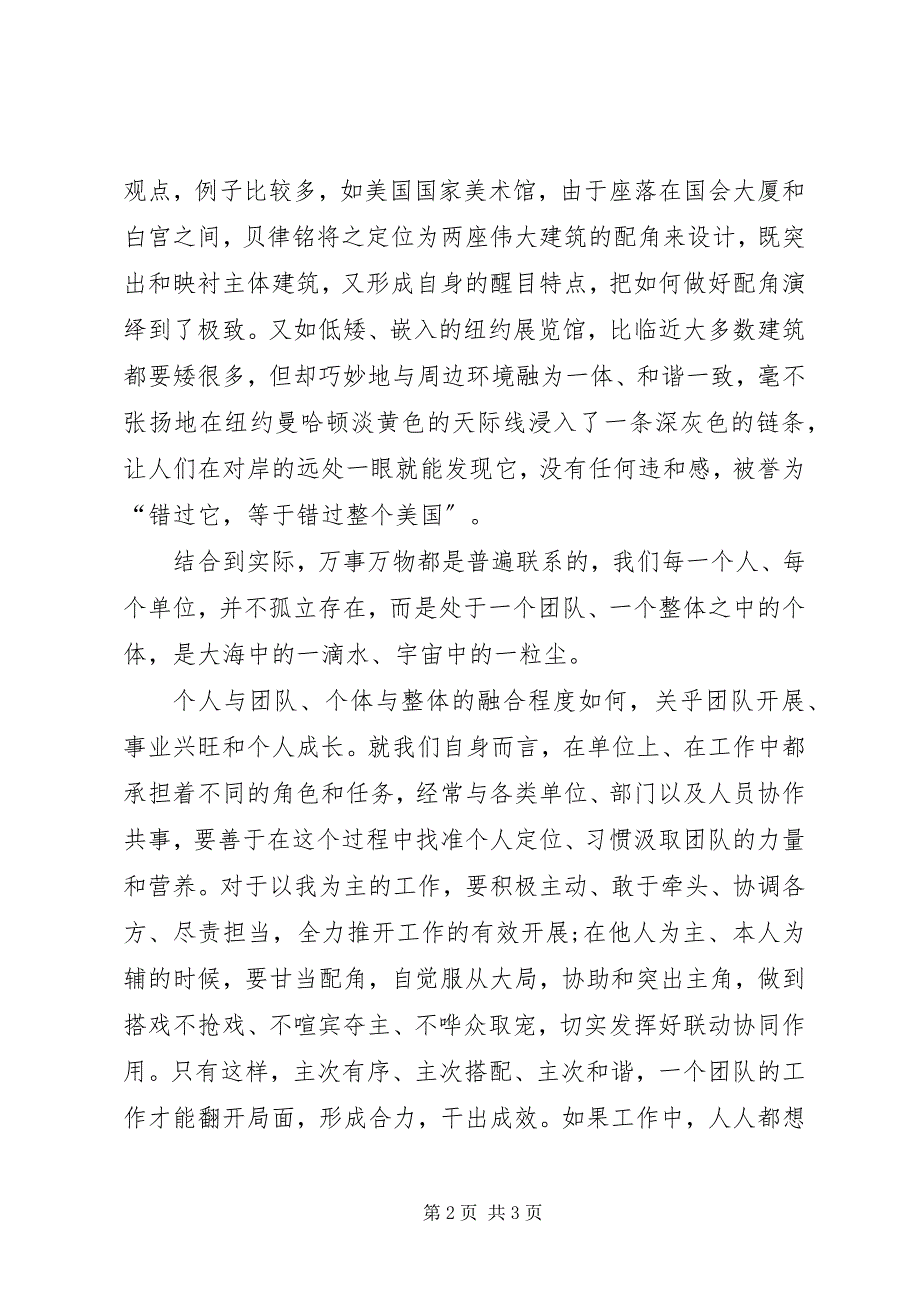 观点，例子比较多，如美国国家美术馆，由于座落在国会大厦和
白宫之间，贝律铭将之定位为两座伟大建筑的配角来设计，既突
出和映衬主体建筑，又形成自身的醒目特点，把如何做好配角演
绎到了极致。又如低矮、嵌入的纽约展览馆，比临近大多数建筑
都要矮很多，但却巧妙地与周边环境融为一体、和谐一致，毫不
张扬地在纽约曼哈顿淡黄色的天际线浸入了一条深灰色的链条，
让人们在对岸的远处一眼就能发现它，没有任何违和感，被誉为
“错过它，等于错过整个美国〞。
结合到实际，万事万物都是普遍联系的，我们每一个人、每
个单位，并不孤立存在，而是处于一个团队、一个整体之中的个
体，是大海中的一滴水、宇宙中的一粒尘。
个人与团队、个体与整体的融合程度如何，关乎团队开展、
事业兴旺和个人成长。就我们自身而言，在单位上、在工作中都
承担着不同的角色和任务，经常与各类单位、部门以及人员协作
共事，要善于在这个过程中找准个人定位、习惯汲取团队的力量
和营养。对于以我为主的工作，要积极主动、敢于牵头、协调各
方、尽责担当，全力推开工作的有效开展;在他人为主、本人为
辅的时候，要甘当配角，自觉服从大局，协助和突出主角，做到
搭戏不抢戏、不喧宾夺主、不哗众取宠，切实发挥好联动协同作
用。只有这样，主次有序、主次搭配、主次和谐，一个团队的工
作才能翻开局面，形成合力，干出成效。如果工作中，人人都想
第 2 页 共 3 页